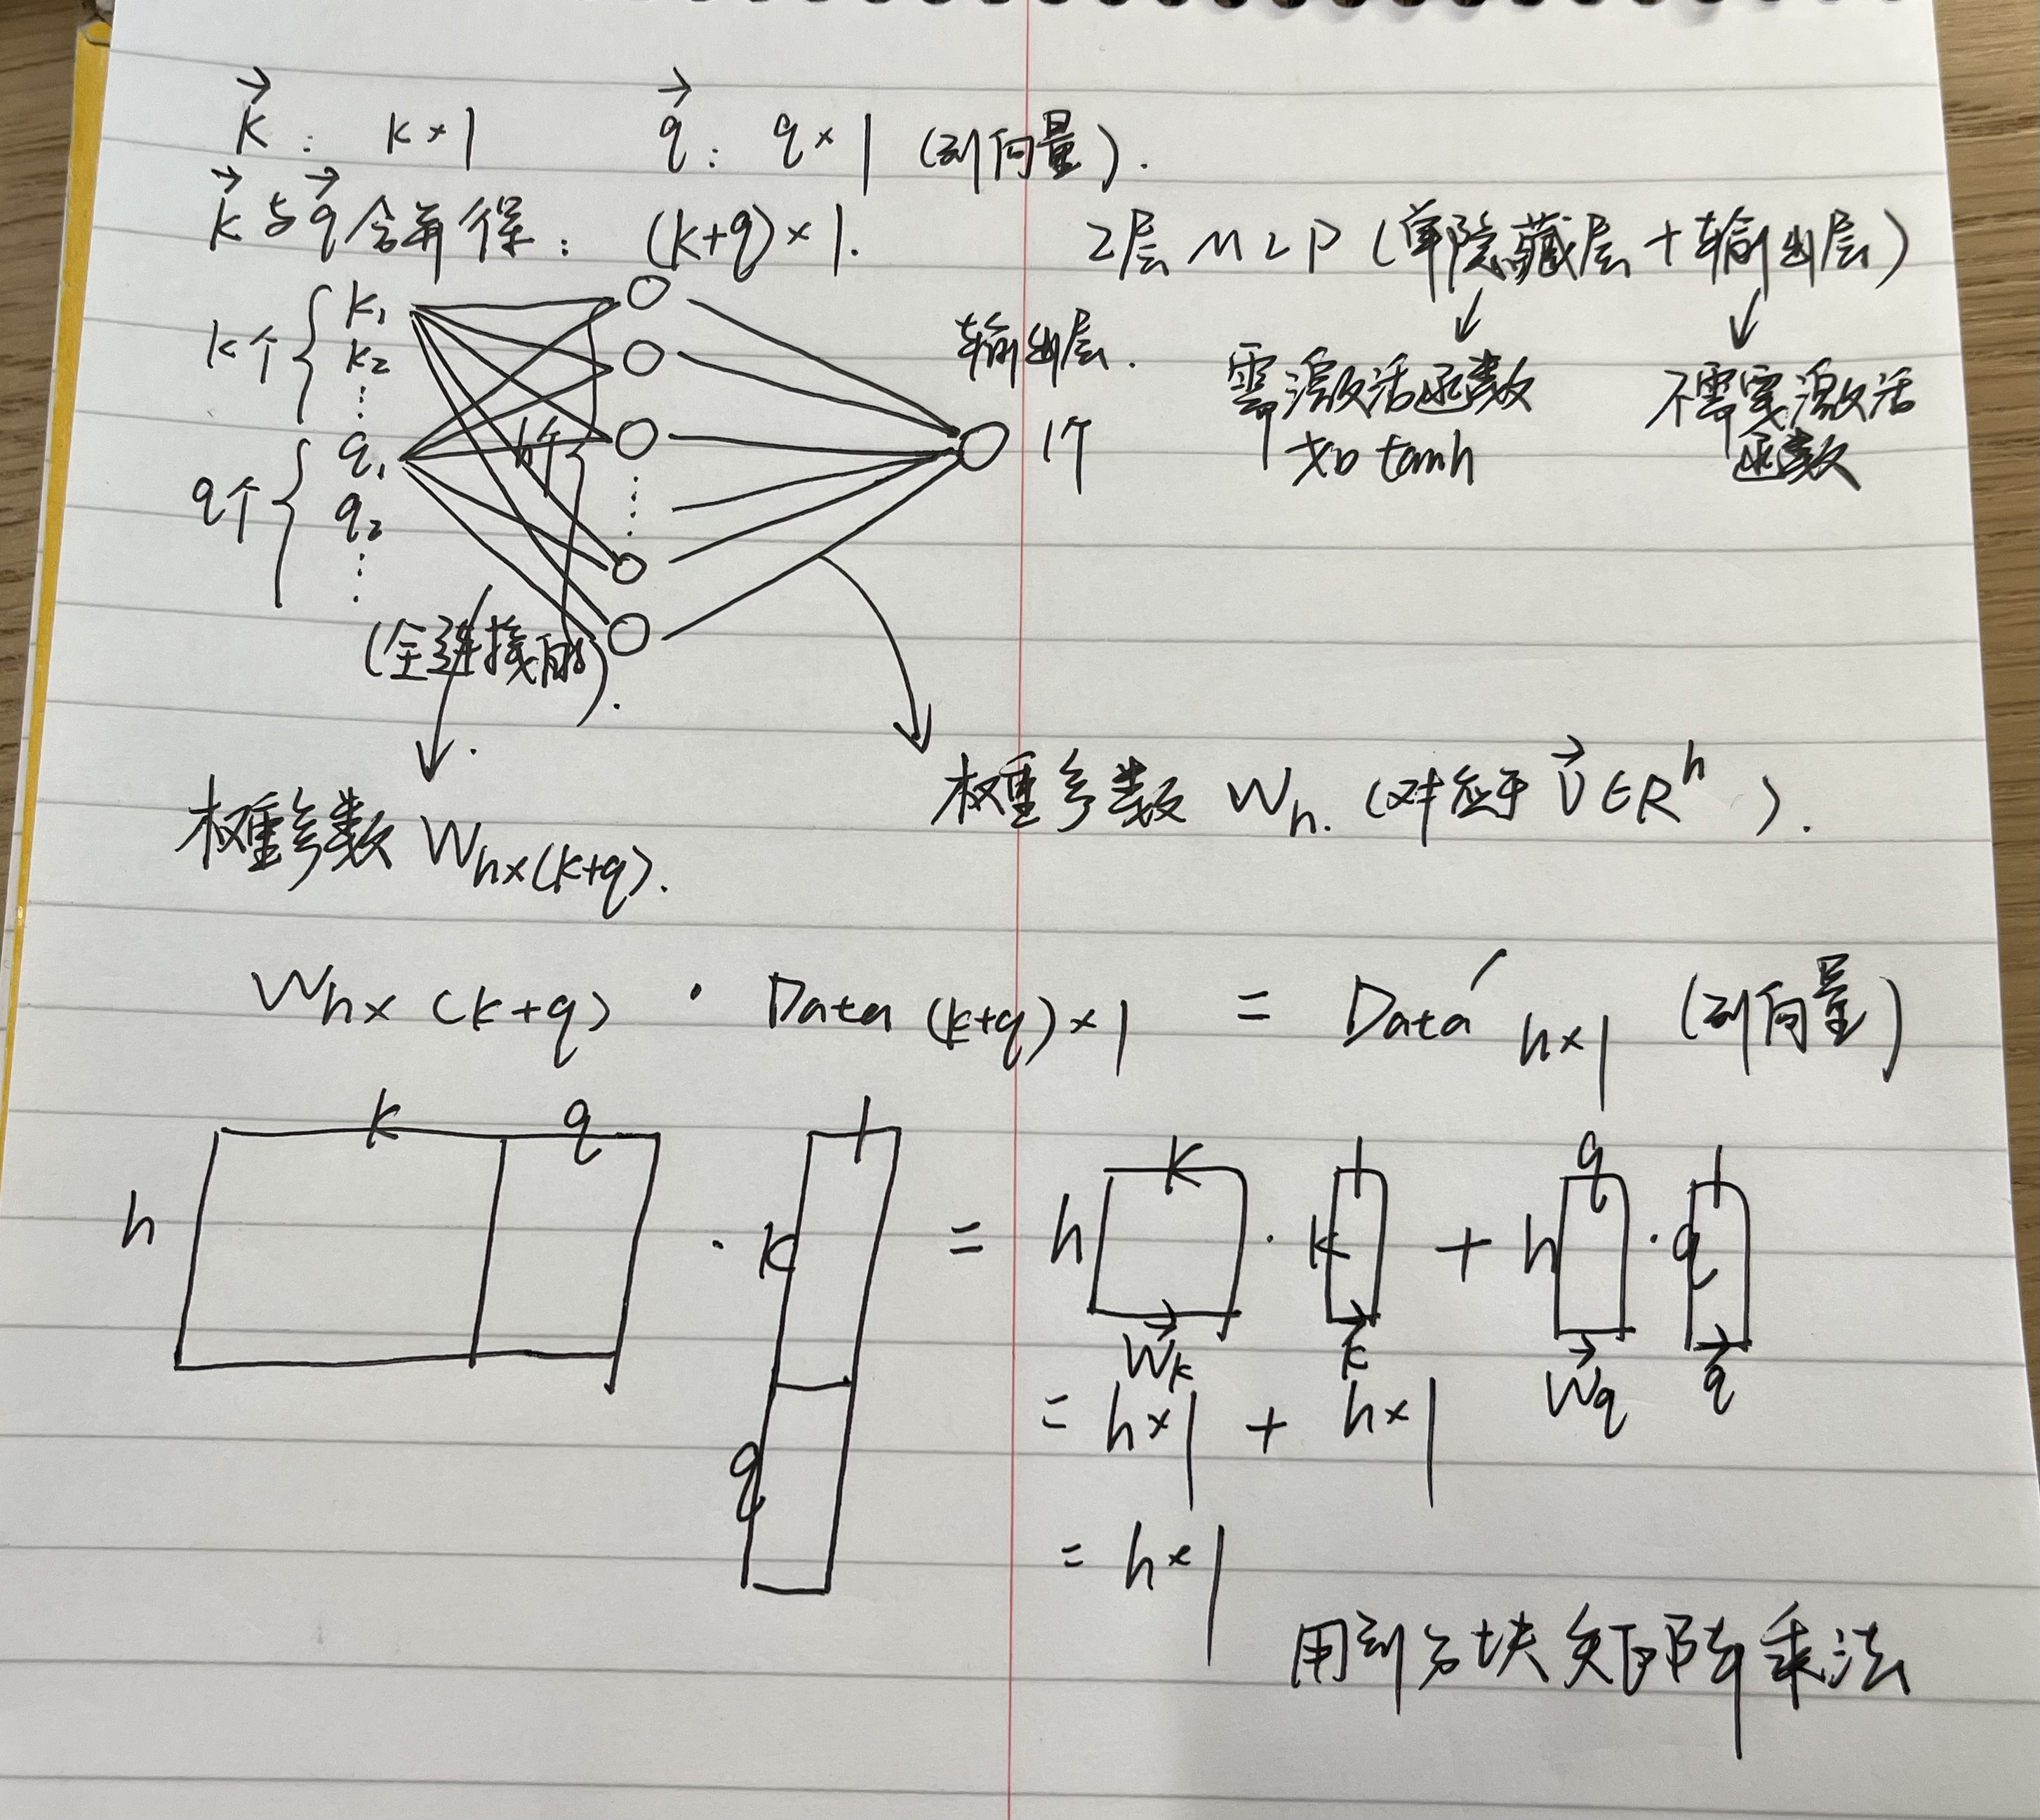 k⃗ : k×1 q⃗ : q×1 (列向量).
k⃗ 与 q⃗ 合并得: (k+q)×1.
2层MLP (单隐藏层+输出层)
需激活函数 如tanh
不需要激活函数
k个 { k₁ k₂ ⋮
q个 { q₁ q₂ ⋮
h个
输出层.
1个
(全连接的).
权重参数 Wₕₓ₍ₖ₊q₎.
权重参数 Wₕ. (对应于 v⃗∈Rʰ).
Wₕₓ₍ₖ₊q₎ · Data₍ₖ₊q₎ₓ₁ = Data′ₕₓ₁ (列向量)
k q 1 k 1 q 1
h · k = h · k + h · q
W⃗ₖ k⃗ W⃗q q⃗
q
= h×1 + h×1
= h×1
用到分块矩阵乘法